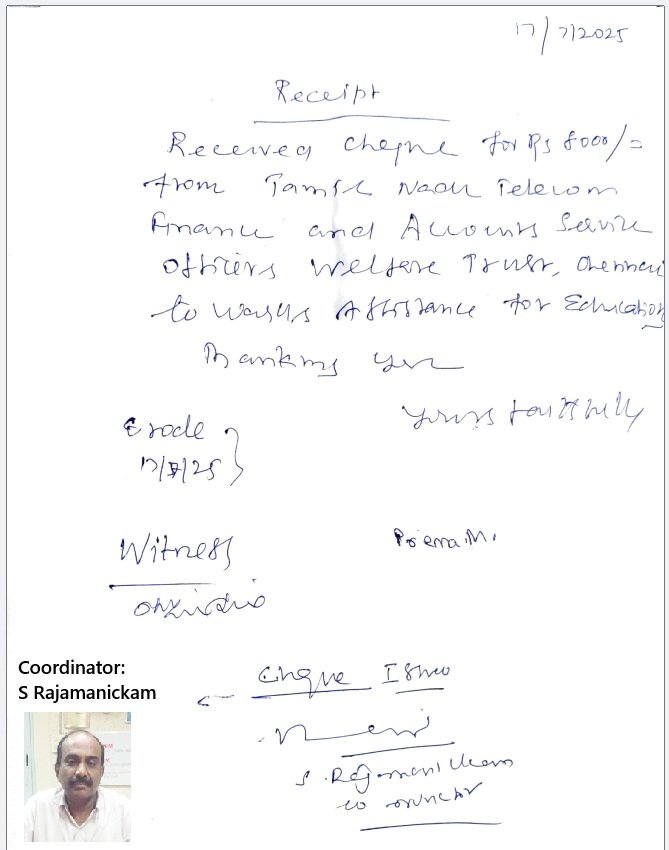 17/7/2025
Receipt
Received cheque for Rs 8000/=
from Tamil Nadu Telecom
Finance and Accounts Service
Officers Welfare Trust, Chennai
to wards Assistance for Education
Thanking you
Yours faithfully
Erode
17/7/25
Prema.M.
Witness
Coordinator:
S Rajamanickam
Cheque Issued
S. Rajamanickam